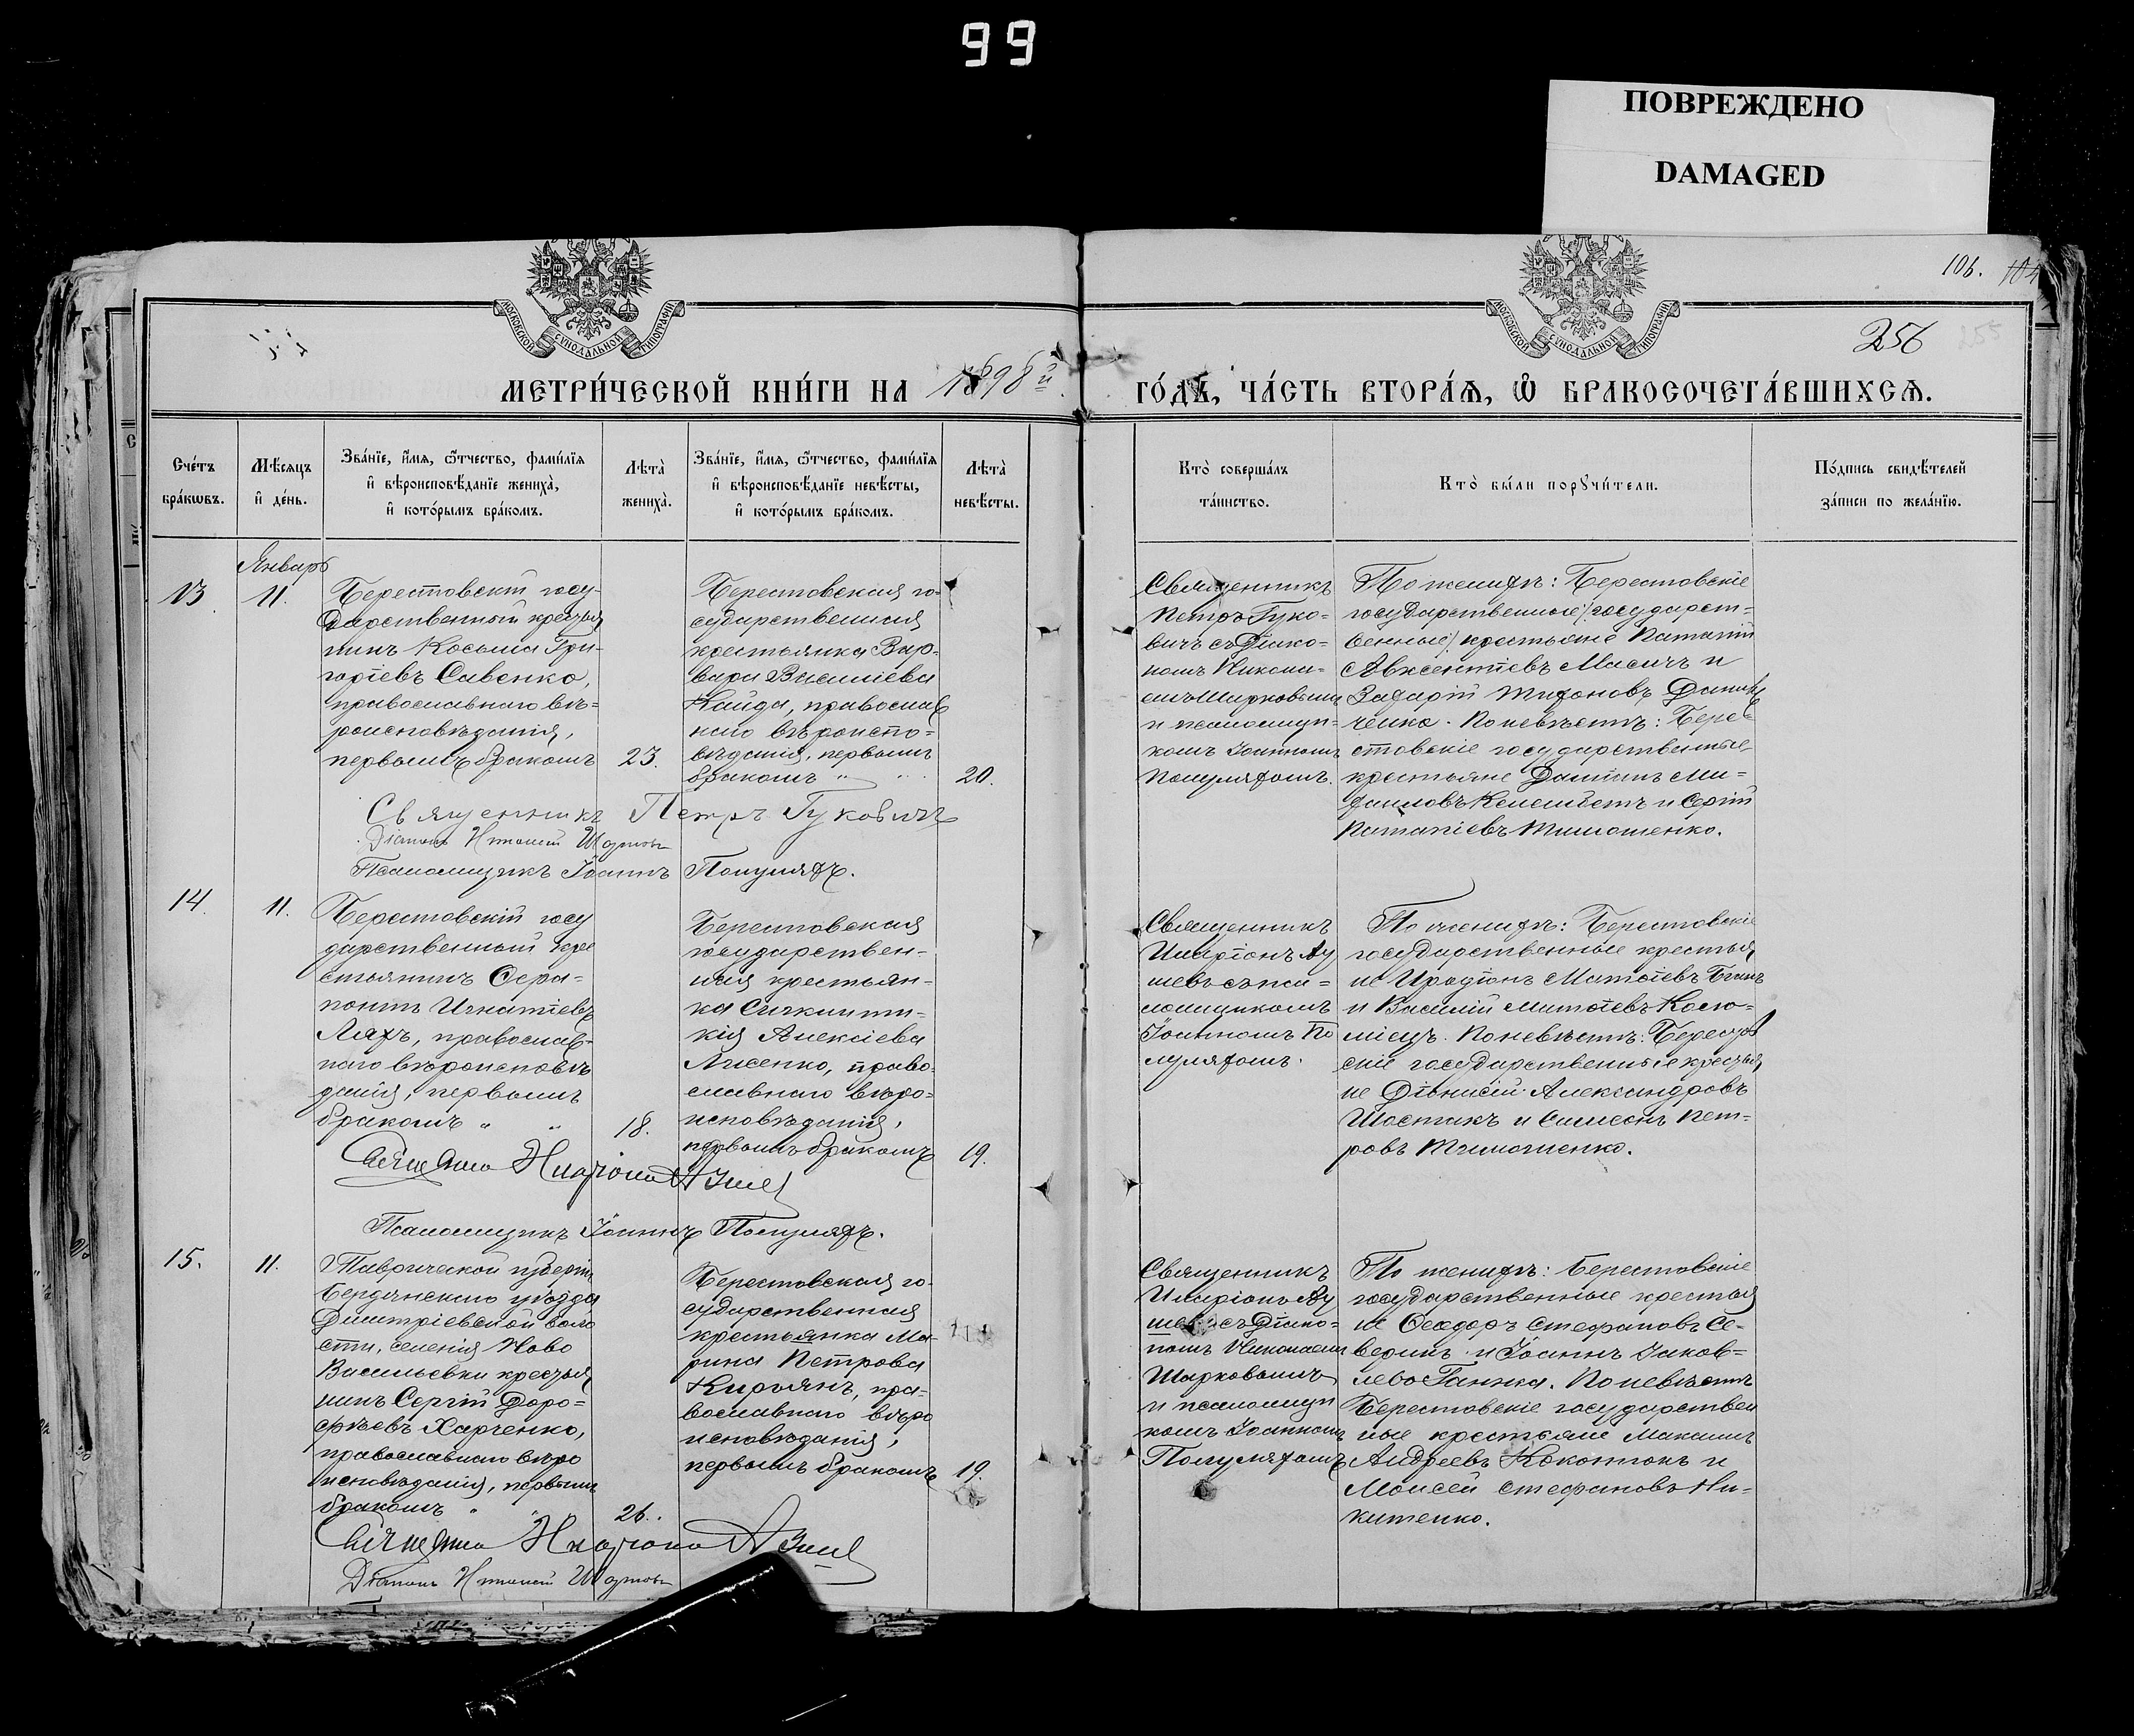 99
ПОВРЕЖДЕНО
DAMAGED
106. 104
256 255
МОСКОВСКОЙ СУНОДАЛЬНОЙ ТИПОГРАФІИ
МОСКОВСКОЙ СУНОДАЛЬНОЙ ТИПОГРАФІИ
МЕТРИ́ЧЕСКОЙ КНИ́ГИ НА 1898й
ГО́ДЪ, ЧА́СТЬ ВТОРА́Ѧ, Ѽ БРАКОСОЧЕТА́ВШИХСѦ.
Сче́тъ
бра́кѡвъ.
Мѣ́сяцъ
и҆ де́нь.
Зва́нїе, и҆́мя, ѻ҆́тчество, фами́лїя
и҆ вѣроисповѣ́данїе жениха̀,
и҆ кото́рымъ бра́комъ.
Лѣта̀
жениха̀.
Зва́нїе, и҆́мя, ѻ҆́тчество, фами́лїя
и҆ вѣроисповѣ́данїе невѣ́сты,
и҆ кото́рымъ бра́комъ.
Лѣта̀
невѣ́сты.
Кто̀ соверша́лъ
та́инство.
Кто̀ бы́ли порꙋчи́тели.
По́дпись свидѣ́телей
за́писи по жела́нїю.
Январь
13.
11.
Берестовскій госу-
дарственный крестья
нинъ Косьма Гри-
горіевъ Савенко,
православнаго вѣ=
роисповѣданія,
первымъ бракомъ
23.
Берестовская го-
сударственная
крестьянка Вар-
вара Василіева
Кайда, православ
наго вѣроиспо=
вѣданія, первымъ
бракомъ " "
20.
Священникъ
Петръ Гуко-
вичъ съ Діако-
номъ Никола-
емъ Шарковымъ
и псаломщи-
комъ Іоанномъ
Полуляхомъ.
По женихѣ: Берестовскіе
государственные (государст-
венные) крестьяне Патапій
Авксентіевъ Масичъ и
Захарій Тихоновъ Данил
ченко. По невѣстѣ: Бере-
стовскіе государственные
крестьяне Даніилъ Ми-
хаиловъ и Сергій
Патапіевъ Тимошенко.
Священникъ Петръ Гуковичъ
Діаконъ Николай Шарковъ
Псаломщикъ Іоаннъ Полуляхъ.
14.
11.
Берестовскій госу
дарственный кре
стьянинъ Ѳера-
понтъ Игнатіевъ
Ляхъ, православ-
наго вѣроисповѣ
данія, первымъ
бракомъ " "
18.
Берестовская
государствен-
ная крестьян-
ка Сигклити-
кія Алексіева
Лисенко, право-
славнаго вѣро-
исповѣданія,
первымъ бракомъ
19.
Священникъ
Иларіонъ Ау
шевъ съ пса-
ломщикомъ
Іоанномъ По
луляхомъ.
По женихѣ: Берестовскіе
государственные крестья
не Иродіонъ Матѳіевъ
и Василій Матѳіевъ Коло-
міецъ. По невѣстѣ: Берестов
скіе государственные крестья
не Діонисій Александровъ
Шостакъ и Симеонъ Пет-
ровъ Тимошенко.
Священникъ Иларіонъ
Псаломщикъ Іоаннъ Полуляхъ.
15.
11.
Таврической губерн.
Бердянскаго уѣзда
Димитріевской воло
сти, селенія Ново
Васильевки крестья
нинъ Сергій Доро=
ѳеевъ Харченко,
православнаго вѣро
исповѣданія, первымъ
бракомъ " "
26.
Берестовская го-
сударственная
крестьянка Ма-
рина Петрова
Кирьянъ, пра-
вославнаго вѣро
исповѣданія,
первымъ бракомъ
19.
Священникъ
Иларіонъ Ау
шевъ съ Діако-
номъ Николаемъ
Шарковымъ
и псаломщи
комъ Іоанномъ
Полуляхомъ
По женихѣ: Берестовскіе
государственные крестья
не Ѳеодоръ Стефановъ Се-
веринъ и Іоаннъ Іаков=
левъ Ганжа. По невѣстѣ
Берестовскіе государствен
ные крестьяне Максимъ
Андреевъ и
Моисей Стефановъ Ни-
китенко.
Священникъ Иларіонъ
Діаконъ Николай Шарковъ